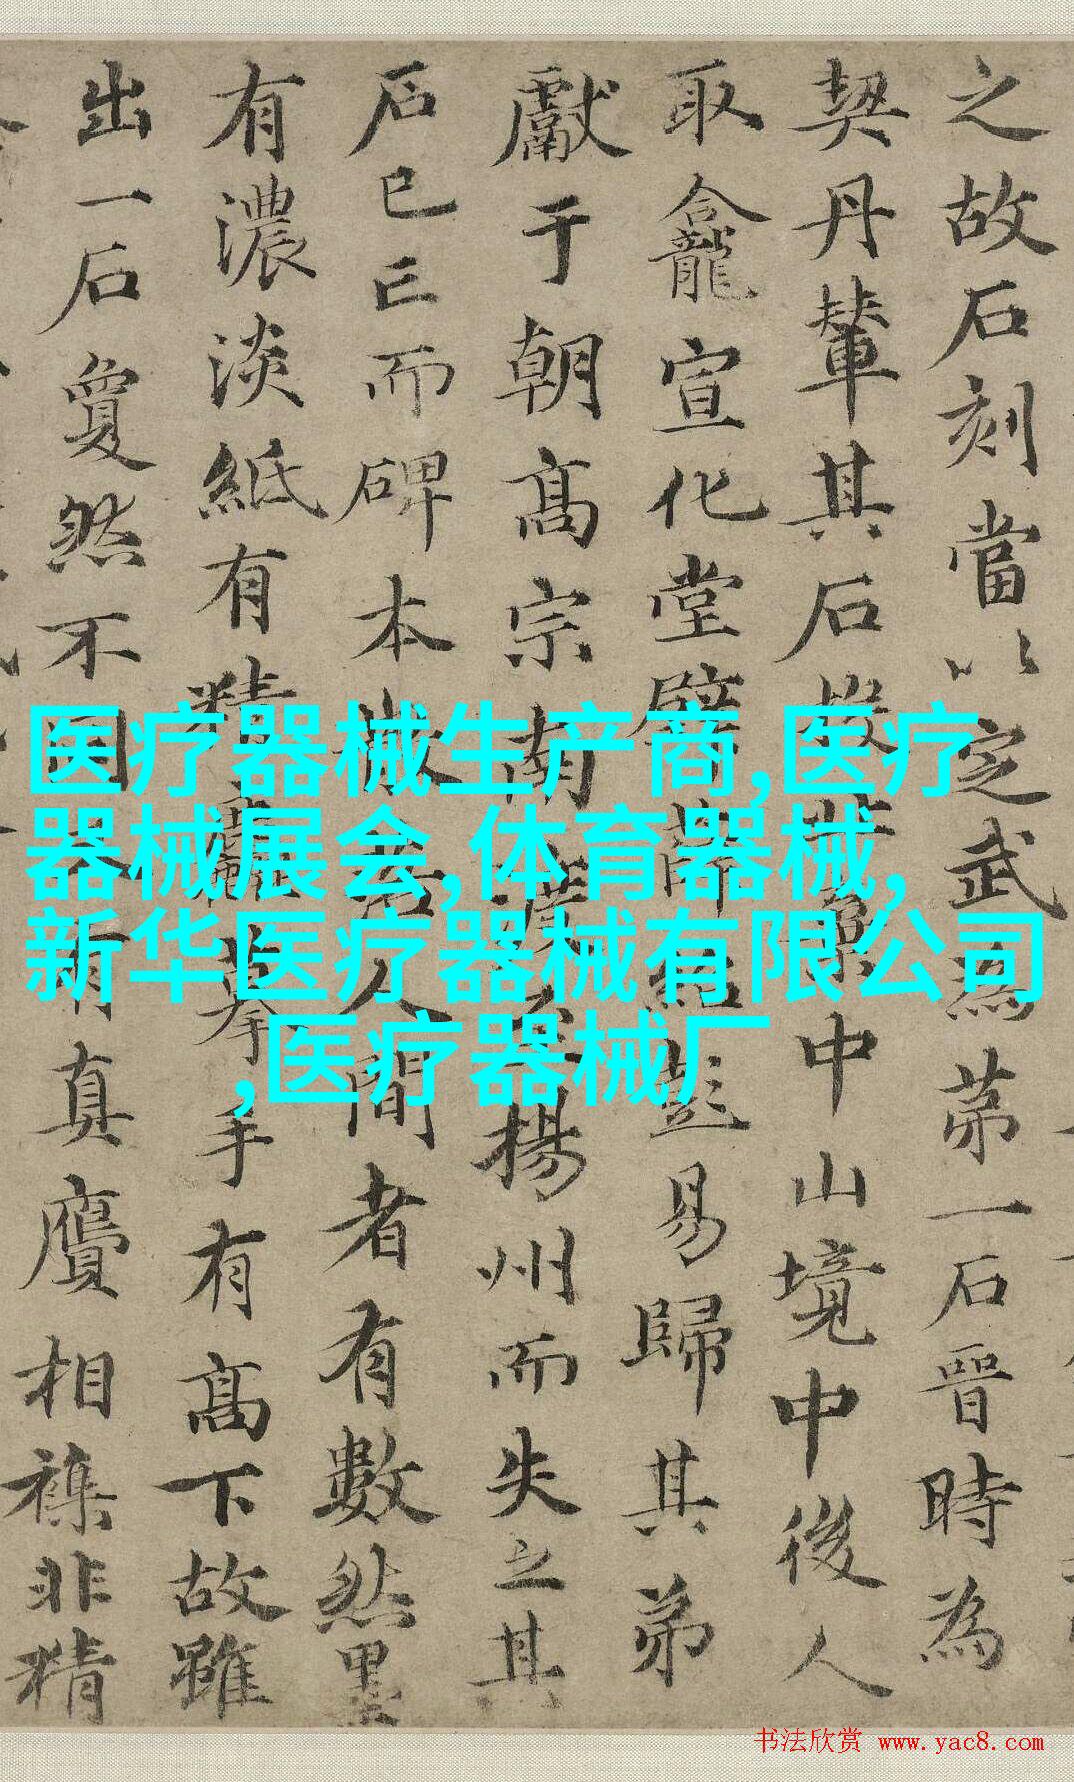 之故石刻當以定武為第一石晉時為
契丹輦其石棄中山境中後人
取龕宣化堂壁薛紹彭易歸其弟
獻于朝高宗南渡至揚州而失之其
石已亡而碑本散落人間者有數然墨
有濃淡紙有精麤摹手有高下故雖
出一石夐然不同有真贗相襍非精
医疗器械生产商,医疗
器械展会,体育器械,
新华医疗器械有限公司
,医疗器械厂
书法欣赏 www.yac8.com